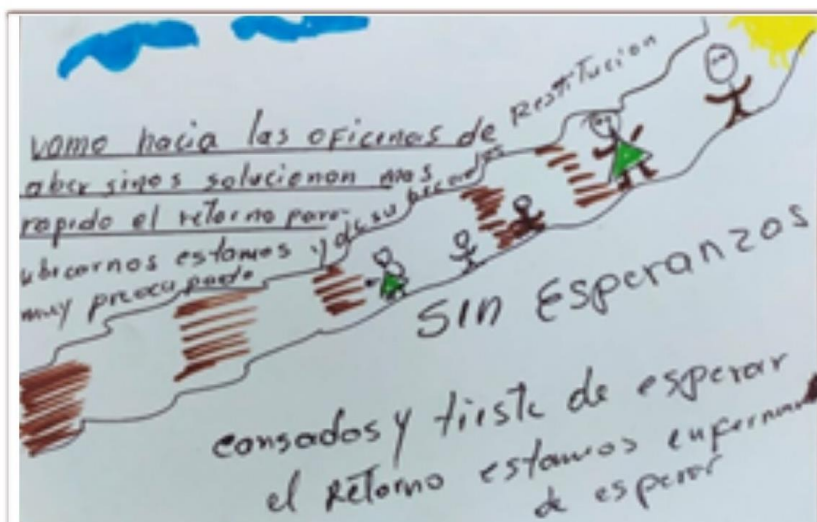 vamo hacia las oficinas de Restitucion
aber sinos solucionan mas
rapido el retorno para
ubicarnos estamos y
muy preocupado
SIN ESPERANZAS
cansados y tirste de esperar
el retorno estamos enfermando
de esperar